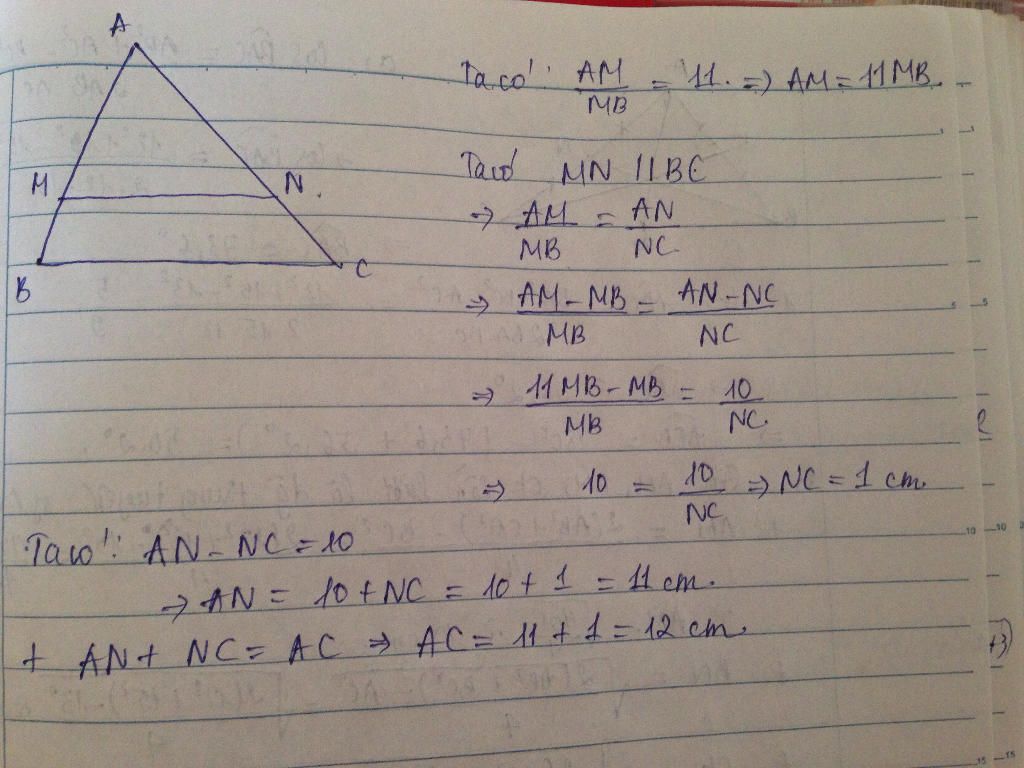 A
M
N
B
C
Ta có: AM/MB = 11. => AM = 11MB.
Ta có MN // BC
=> AM/MB = AN/NC
=> (AM - MB)/MB = (AN - NC)/NC
=> (11MB - MB)/MB = 10/NC.
=> 10 = 10/NC => NC = 1 cm.
Ta có: AN - NC = 10
=> AN = 10 + NC = 10 + 1 = 11 cm.
+ AN + NC = AC => AC = 11 + 1 = 12 cm.